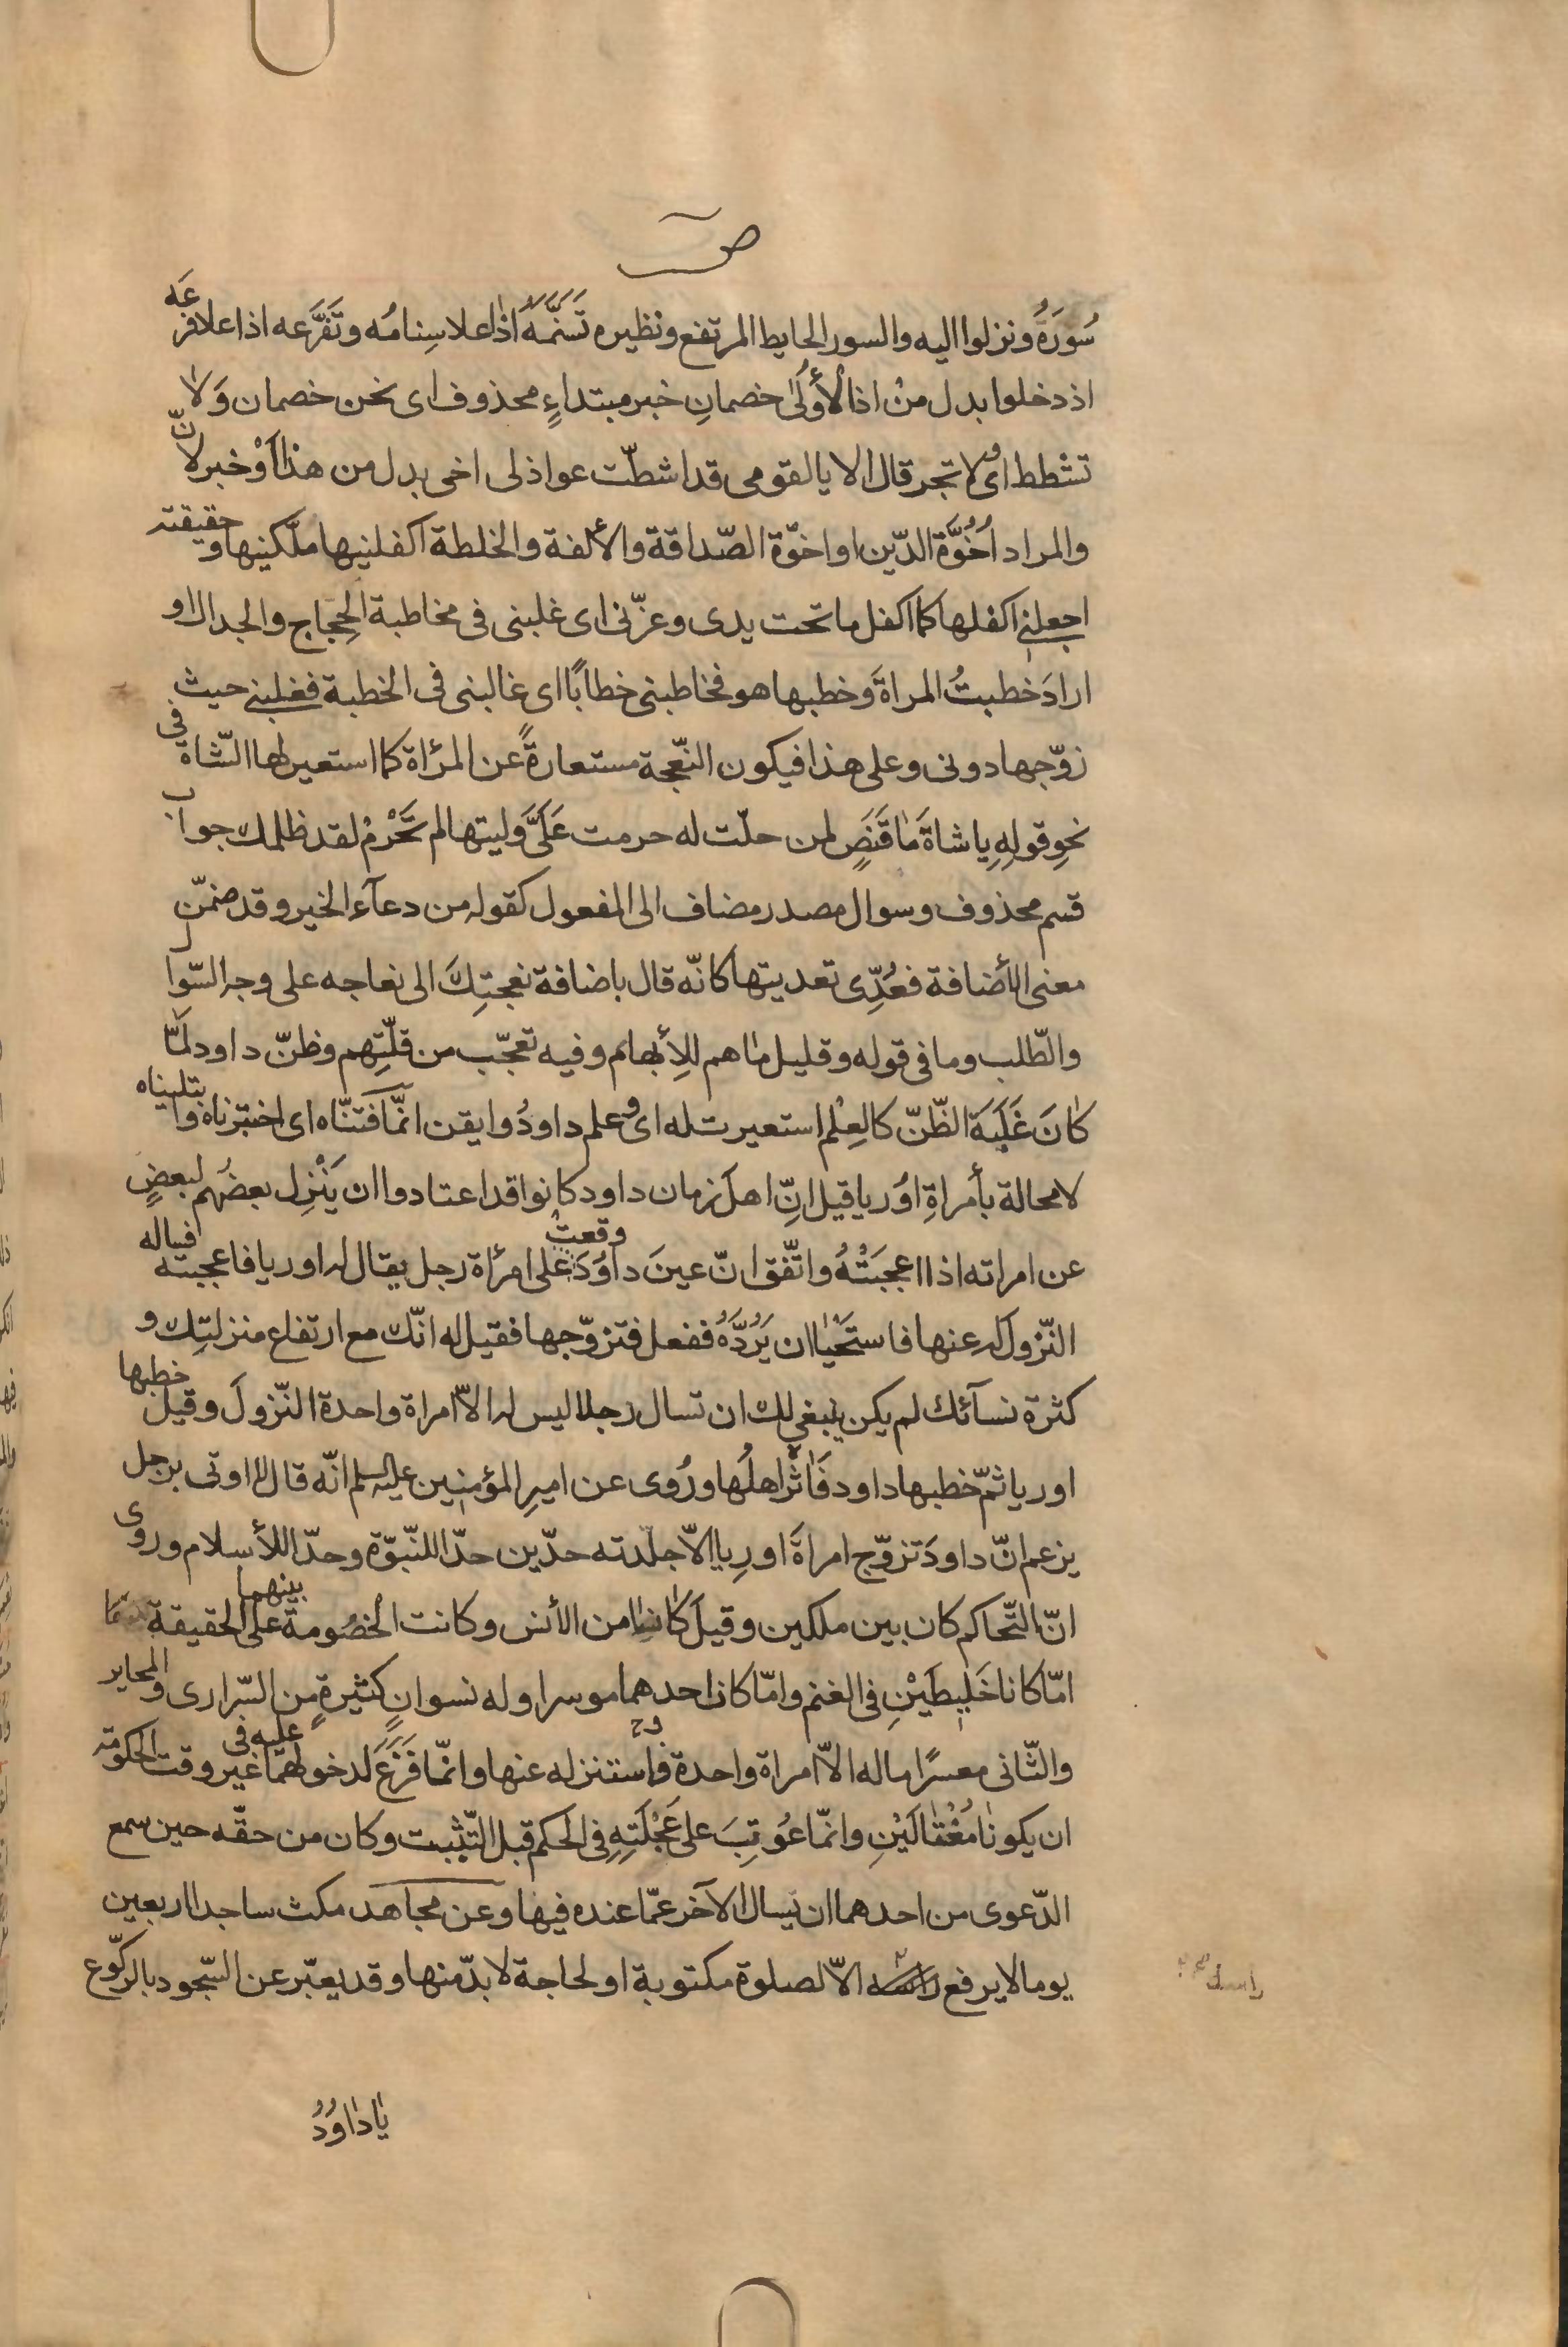 ص
سُورَهُ ونزلوا اليه والسور الحايط المرتفع ونظيره تَسَنَّمَهُ اذا علا سِنامُه وتَفَرَّعه اذا علا فرعَه
اذ دخلوا بدل منْ اذا لأُولَىٰ خصمانِ خبر مبتداءٍ محذوف اى نحن خصمان وَلا
تشْطط اى ولا تجر قال الا يا لقومى قد اشطّت عواذلى اخى بدل من هذا أوْ خبر لانّ
والمراد اُخُوَّة الدّين او اخوّة الصّداقة والألفة والخلطة اكفلنيها ملّكنيها وحقيقته
اجعلنى اكفلها كما اكفل ما تحت يدى وعزّنى اى غلبنى فى مخاطبة الحِجَاج والجدال او
ارادَ خطبتُ المراةَ وخطبها هو فخاطبنى خطابًا اى غالبنى فى الخطبة فغلبنى حيث
زوّجها دونى وعلى هذا فيكون النّعجة مستعارةً عن المرْاة كما استعير لها الشّاة فى
نحوِ قولِهِ يا شاةَ مٰا قَنَصٍ لمن حلّت له حرمت عَلَىَّ وليتها لم تَحْرُمْ لقد ظلمك جواب
قسم محذوف وسوال مصدر مضاف الى المفعول كقوله من دعآء الخير وقد ضمّن
معنى الأضافة فعُدِّى تعديتها كانّه قال باضافة نعجتِكَ الى نعاجه على وجه السّوال
والطّلب وما فى قوله وقليل مٰا هم للإبهام وفيه تعجّب من قلّتِهم وظنّ داود لَمّا
كٰانَ غَلَبَة الظّنّ كالعِلْم استعيرت له اى وعلم داودُ وايقن انّما فَتَنّاه اى اختبرناه وابتليناه
لا محالة بأمراةِ اوُريا قيل انِّ اهلَ زمان داود كانوا قد اعتادوا ان يَنْزِل بعضُهم لبعضٍ
عن امراته اذا اعجبَتْهُ واتّفق انّ عينَ داوُدَ وقعتْ على امرْاة رجل يقال له اوريا فاعجبته فساله
النّزولَ له عنها فاستَحْيٰا ان يَرُدَّهُ ففعل فتزوّجها فقيل له انّك مع ارتفاع منزلتِك و
كثرة نسآئك لم يكن ينبغى لك ان تسال رجلا ليس له الاّ امراة واحدة النّزولَ وقيل خطبها
اوريا ثمّ خطبها داود فَاٰثَرَ اهلُها ورُوى عن اميرِ المؤمنين عليه السلم انّه قال لا اوتى برجل
يزعم انّ داودَ تزوّج امراةَ اورِيا الاّ جلّدته حدّين حدّا للنّبوّة وحدّا للأسلام وروى
انّ التّحاكم كان بين ملكين وقيلَ كٰانا من الأنس وكانت الخصُومة بينهما على الحقيقة
امّا كانا خَلِيطَيْنِ فى الغنم وامّا كان احدهما موسرا وله نسوانٍ كثيرةٍ من السّرارى والمحاير
والثّانى معسرًا ماله الاّ امراة واحدة فاستنزله عنها وانّما فَزَعَ لدخولهما عليه فى غير وقت الحكومة
ان يكونٰا مُغْتٰالَيْنِ وانّما عُوتِبَ على عَجْلَتِهِ فى الحكم قبل التّثبت وكان من حقّه حين سمع
الدّعوى من احدهما ان يسال الآخر عمّا عنده فيها وعن مجاهد مكث ساجدا اربعين
يوما لا يرفع راسه الاّ لصلوة مكتوبة او لحاجة لا بدّ منها وقد يعبّر عن السّجود بالركّوع
راسه
يٰا دٰاوُدُ